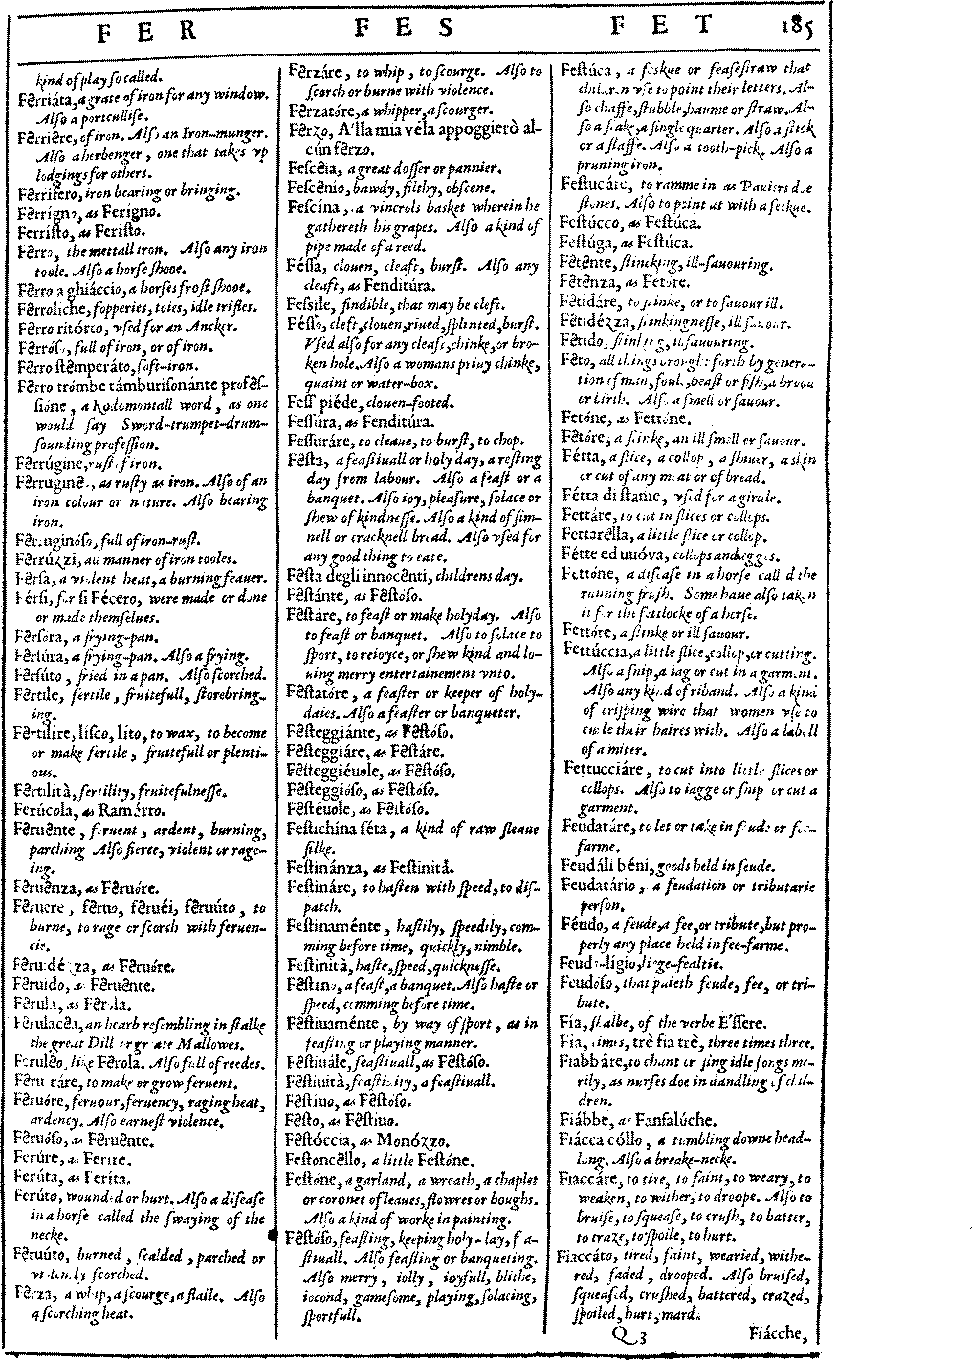 F E R F E S F E T 185
kind of play so called.
Fẽrriáta, a grate of iron for any window.
Also a portcullise.
Fẽrriére, of iron. Also an Iron-munger.
Also a herbenger, one that takes vp
lodgings for others.
Fẽrrifero, iron bearing or bringing.
Fẽrrigno, as Ferígno.
Ferrísto, as Ferísto.
Fẽrro, the mettall iron. Also any iron
toole. Also a horse shooe.
Fẽrro a ghiáccio, a horses frost shooe.
Fẽrroliche, fopperies, toies, idle trifles.
Fẽrro ritórto, vsed for an Ancker.
Fẽrróso, full of iron, or of iron.
Fẽrro stẽmperáto, soft-iron.
Fẽrro trómbe támburisonánte profẽs-
sióne, a Rodomontall word, as one
would say Sword-trumpet-drum-
sounding profession.
Fẽrrúgine, rust of iron.
Fẽrrugineo, as rusty as iron. Also of an
iron colour or nature. Also bearing
iron.
Fẽrruginóso, full of iron-rust.
Fẽrrúzzi, all manner of iron tooles.
Fẽrsa, a violent heat, a burning feauer.
Férsi, for si Fécero, were made or done
or made themselues.
Fẽrsora, a frying-pan.
Fẽrsúra, a frying-pan. Also a frying.
Fẽrsúto, fried in a pan. Also scorched.
Fẽrtile, fertile, fruitefull, storebring-
ing.
Fẽrtilíre, lísco, líto, to wax, to become
or make fertile, fruitefull or plenti-
ous.
Fẽrtilità, fertility, fruitefulnesse.
Ferúcola, as Ramárro.
Fẽruẽnte, feruent, ardent, burning,
parching Also fierce, violent or rage-
ing.
Fẽruẽnza, as Fẽruóre.
Fẽruere, fẽruo, fẽruéi, fẽruúto, to
burne, to rage or scorch with feruen-
cie.
Fẽruidézza, as Fẽruóre.
Fẽruido, as Fẽruẽnte.
Fẽrula, as Fẽrola.
Fẽrulacẽa, an hearb resembling in stalke
the great Dill or great Mallowes.
Feruléo, like Fẽrola. Also full of reedes.
Fẽruentáre, to make or grow feruent.
Fẽruóre, feruour, feruency, raging heat,
ardency. Also earnest violence.
Fẽruóso, as Fẽruẽnte.
Ferúre, as Ferire.
Ferúta, as Ferita.
Ferúto, wounded or hurt. Also a disease
in a horse called the swaying of the
necke.
Fẽruúto, burned, scalded, parched or
violently scorched.
Fẽrza, a whip, a scourge, a flaile. Also
a scorching heat.
Fẽrzáre, to whip, to scourge. Also to
scorch or burne with violence.
Fẽrzatóre, a whipper, a scourger.
Fẽrzo, A'lla mia vela appoggierò al-
cún fẽrzo.
Fescẽia, a great dosser or pannier.
Fescẽnio, bawdy, filthy, obscene.
Fescina, a vincrols basket wherein he
gathereth his grapes. Also a kind of
pipe made of a reed.
Féssa, clouen, cleaft, burst. Also any
cleaft, as Fenditúra.
Fessile, findible, that may be cleft.
Fésso, cleft, clouen, riued, splinted, burst.
Vsed also for any cleaft, chinke, or bro-
ken hole. Also a womans priuy chinke,
quaint or water-box.
Fess' piéde, clouen-footed.
Fessúra, as Fenditúra.
Fessuráre, to cleaue, to burst, to chop.
Fẽsta, a feastiuall or holy day, a resting
day from labour. Also a feast or a
banquet. Also ioy, pleasure, solace or
shew of kindnesse. Also a kind of sim-
nell or cracknell bread. Also vsed for
any good thing to eate.
Fẽsta degli innocẽnti, childrens day.
Fẽstánte, as Fẽstóso.
Fẽstáre, to feast or make holyday. Also
to feast or banquet. Also to solace to
sport, to reioyce, or shew kind and lo-
uing merry entertainement vnto.
Fẽstatóre, a feaster or keeper of holy-
daies. Also a feaster or banqueter.
Fẽsteggiánte, as Fẽstóso.
Fẽsteggiáre, as Fẽstáre.
Fẽsteggiéuole, as Fẽstóso.
Fẽsteggióso, as Fẽstóso.
Fẽstéuole, as Fẽstóso.
Festichina séta, a kind of raw sleaue
silke.
Festinánza, as Festinità.
Festináre, to hasten with speed, to dis-
patch.
Festinaménte, hastily, speedily, com-
ming before time, quickly, nimble.
Festinità, haste, speed, quicknesse.
Fẽstino, a feast, a banquet. Also haste or
speed, comming before time.
Fẽstiuaménte, by way of sport, as in
feasting or playing manner.
Fẽstiuále, feastiuall, as Fẽstóso.
Fẽstiuità, feastiuity, a feastiuall.
Fẽstiuo, as Fẽstóso.
Fẽsto, as Fẽstiuo.
Fẽstóccia, as Monózzo.
Festoncẽllo, a little Festóne.
Festóne, a garland, a wreath, a chaplet
or coronet of leaues, flowres or boughs.
Also a kind of worke in painting.
Fẽstóso, feasting, keeping holy-day, fea-
stiuall. Also feasting or banqueting.
Also merry, iolly, ioyfull, blithe,
iocond, gamesome, playing, solacing,
sportfull.
Festúca, a feskue or feasestraw that
children vse to point their letters. Al-
so chaffe, stubble, haume or straw. Al-
so a stake, a single quarter. Also a stick
or a staffe. Also a tooth-picke. Also a
pruning iron.
Festucáre, to ramme in as Pauiers doe
stones. Also to point at with a feskue.
Festúcco, as Festúca.
Festúga, as Festúca.
Fẽtẽnte, stincking, ill-sauouring.
Fẽtẽnza, as Fetóre.
Fẽtidáre, to stinke, or to sauour ill.
Fẽtidézza, stinkingnesse, ill sauour.
Fẽtido, stinking, ill sauouring.
Fẽto, all things brought forth by genera-
tion of man, foule, beast or fish, a brood
or birth. Also a smell or sauour.
Fetóne, as Fettóne.
Fẽtóre, a stinke, an ill smell or sauour.
Fétta, a slice, a collop, a shiuer, a skin
or cut of any meat or of bread.
Fétta di stame, vsed for a girdle.
Fettáre, to cut in slices or collops.
Fettarélla, a little slice or collop.
Fétte ed uuóva, collops and egges.
Fettóne, a disease in a horse call d the
running frush. Some haue also taken
it for the fatlocke of a horse.
Fettóre, a stinke or ill sauour.
Fettúccia, a little slice, collop, or cutting.
Also a snip, a iag or cut in a garment.
Also any kind of riband. Also a kind
of crisping wire that women vse to
curle their haires with. Also a labell
of a miter.
Fettucciáre, to cut into little slices or
collops. Also to iagge or snip or cut a
garment.
Feudatáre, to let or take in feude or fee-
farme.
Feudáli béni, goods held in feude.
Feudatário, a feudation or tributarie
person.
Féudo, a feude, a fee, or tribute, but pro-
perly any place held in fee-farme.
Feudo lígio, liege-fealtie.
Feudóso, that paieth feude, fee, or tri-
bute.
Fía, shalbe, of the verbe E'ssere.
Fía, times, trè fia trè, three times three.
Fiabbáre, to chant or sing idle songs me-
rily, as nurses doe in dandling of chil-
dren.
Fiábbe, as Fanfalúche.
Fiácca cóllo, a tumbling downe head-
long. Also a breake-necke.
Fiaccáre, to tire, to faint, to weary, to
weaken, to wither, to droope. Also to
bruise, to squease, to crush, to batter,
to craze, to spoile, to hurt.
Fiaccáto, tired, faint, wearied, withe-
red, faded, drooped. Also bruised,
squeased, crushed, battered, crazed,
spoiled, hurt, mard.
Q 3 Fiácche,